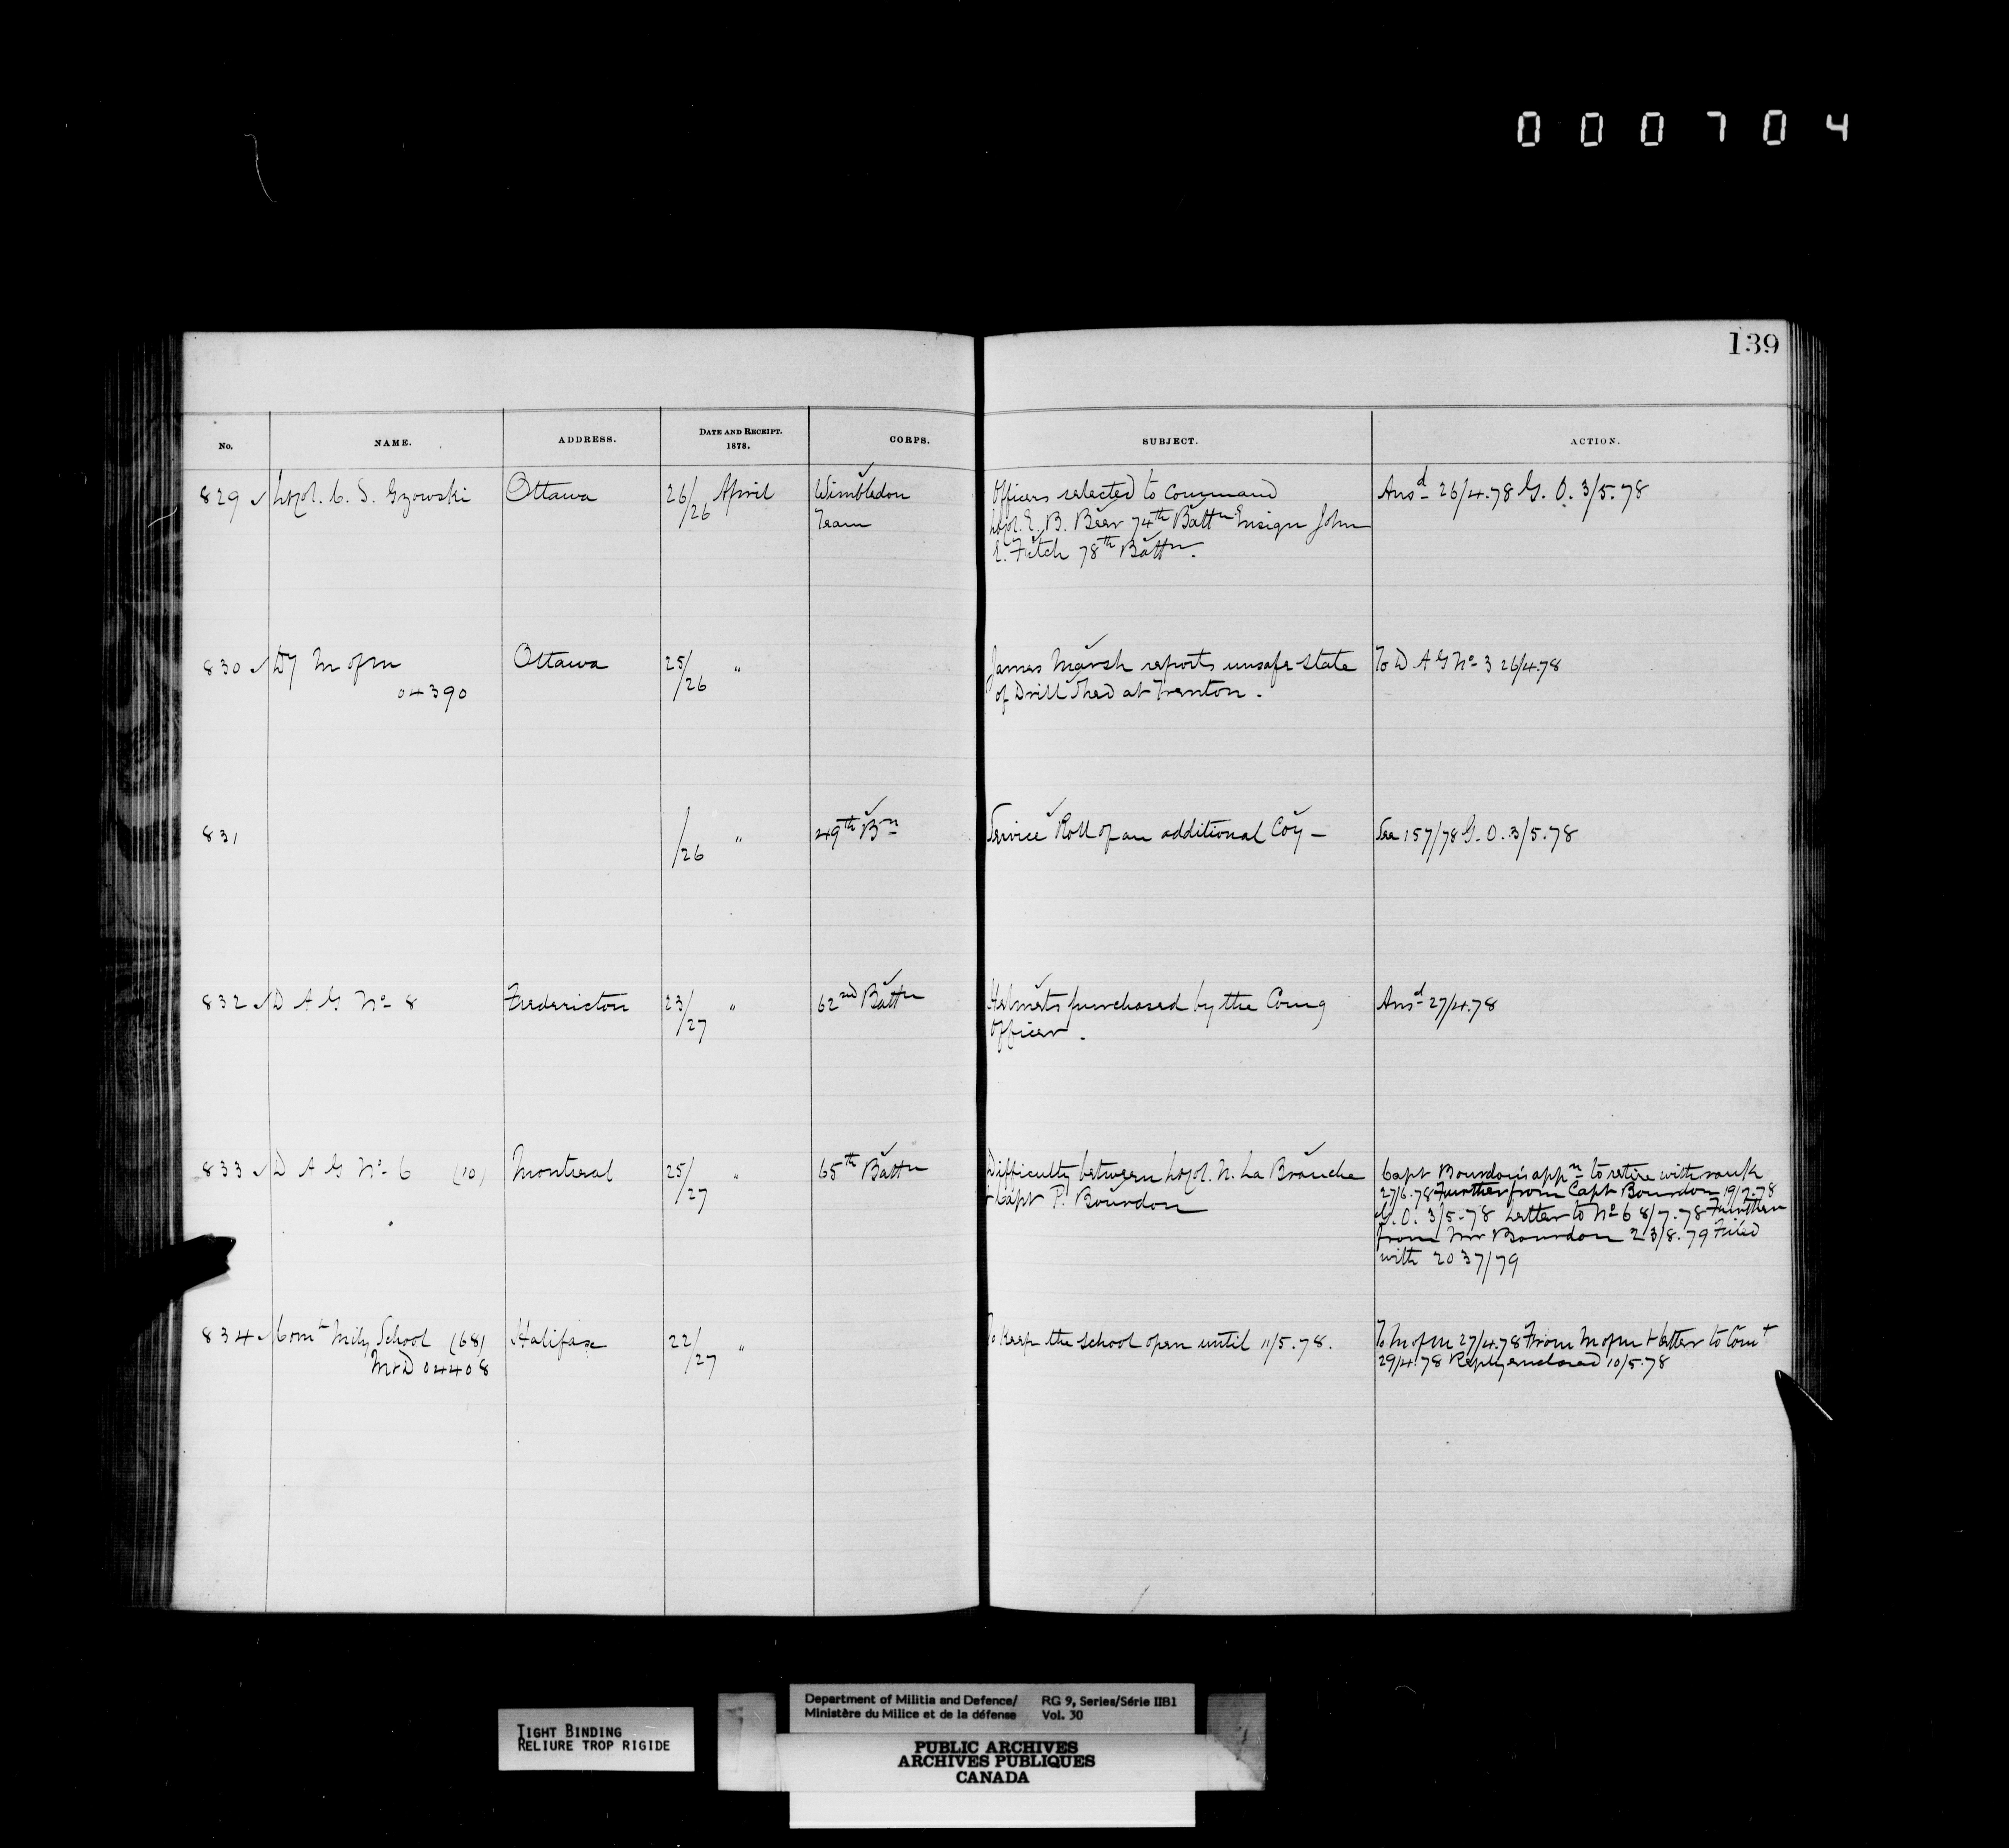 000704
139
No. NAME. ADDRESS. DATE AND RECEIPT. 1878. CORPS. SUBJECT. ACTION.
829 Lt Col. C. S. Gzowski Ottawa 26/26 April Wimbledon Officers selected to command Ansd 26/4.78 G. O. 3/5.78
Team Lt Col. E. B. Beer 74th Battn Ensign John
E. Fitch 78th Battn.
830 Dy M of M Ottawa 25/26 " James Marsh reports unsafe state To D A G No 3 26/4.78
04390 of Drill Shed at Trenton.
831 /26 " 49th Bn Service Roll of an additional Coy - See 157/78 G. O. 3/5.78
832 D A G No 8 Fredericton 23/27 " 62nd Battn Helmets purchased by the Comg Ansd 27/4.78
Officer.
833 D A G No 6 (10) Montreal 25/27 " 65th Battn Difficulty between Lt Col. N. La Branche Capt Bourdon's appn to retire with rank
+ Capt P. Bourdon 27/6.78 Further from Capt Bourdon 19/7.78
G. O. 3/5.78 Letter to No 6 8/7.78 Further
from Mr Bourdon 23/8.79 Filed
with 2037/79
834 Comt Mily School (68) Halifax 22/27 " To keep the school open until 11/5.78. To M of M 27/4.78 From M of M + letter to Comt
M+D 04408 29/4.78 Reply enclosed 10/5.78
TIGHT BINDING
RELIURE TROP RIGIDE
Department of Militia and Defence/ RG 9, Series/Série IIB1
Ministère du Milice et de la défense Vol. 30
PUBLIC ARCHIVES
ARCHIVES PUBLIQUES
CANADA